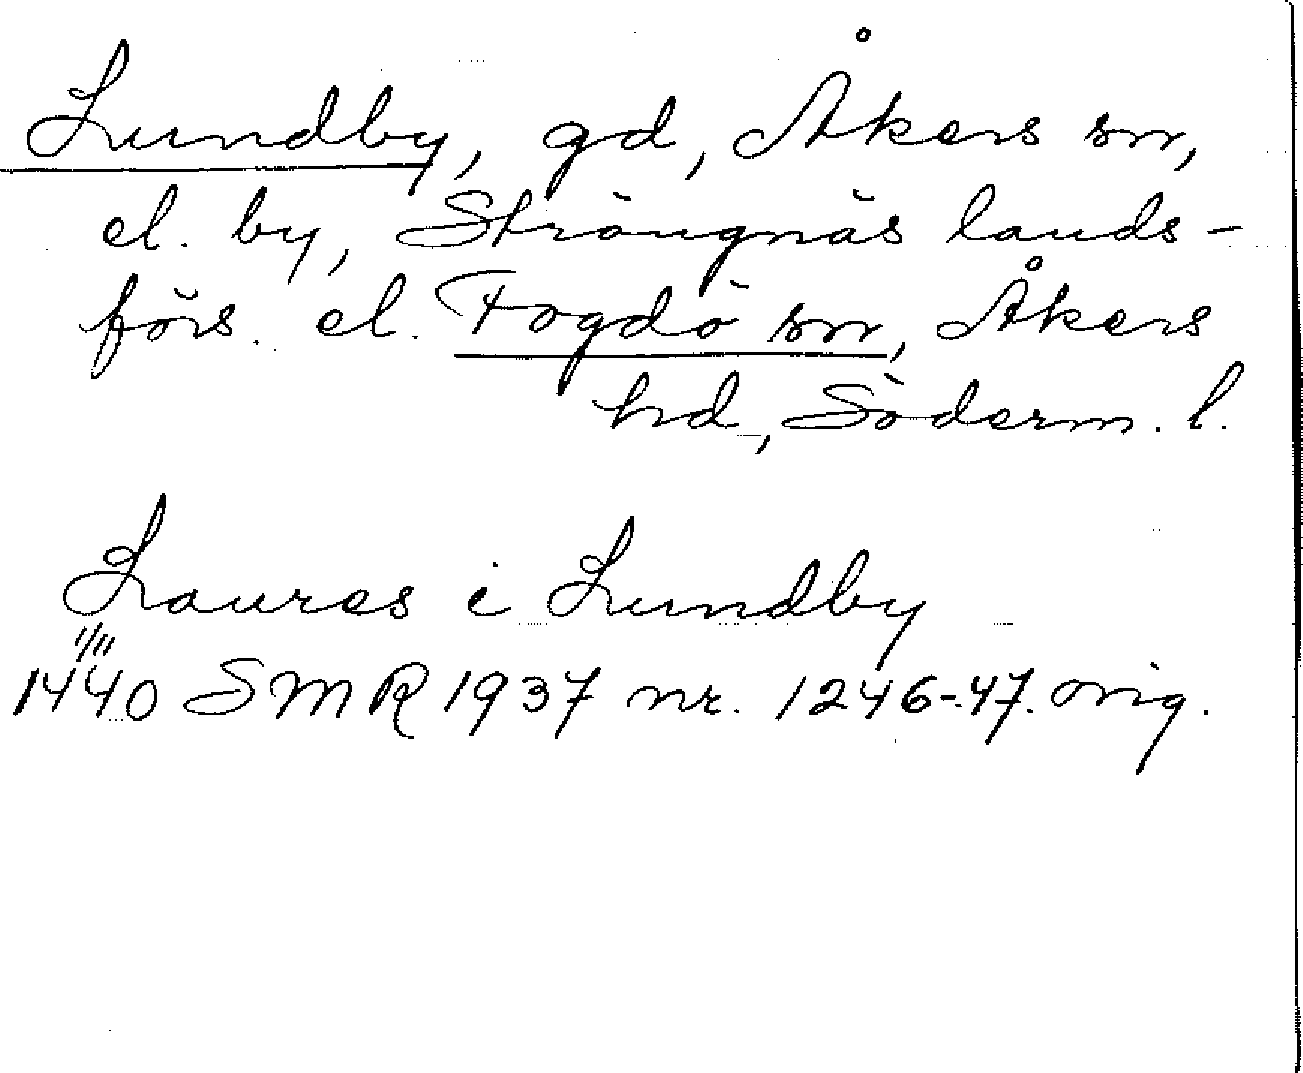 Lundby, gd, Åkers sn,
el. by, Strängnäs lands-
förs. el. Fogdö sn, Åkers
hd, Söderm. l.
Laures i Lundby
11/11
1440 SMR 1937 nr. 1246-47. orig.